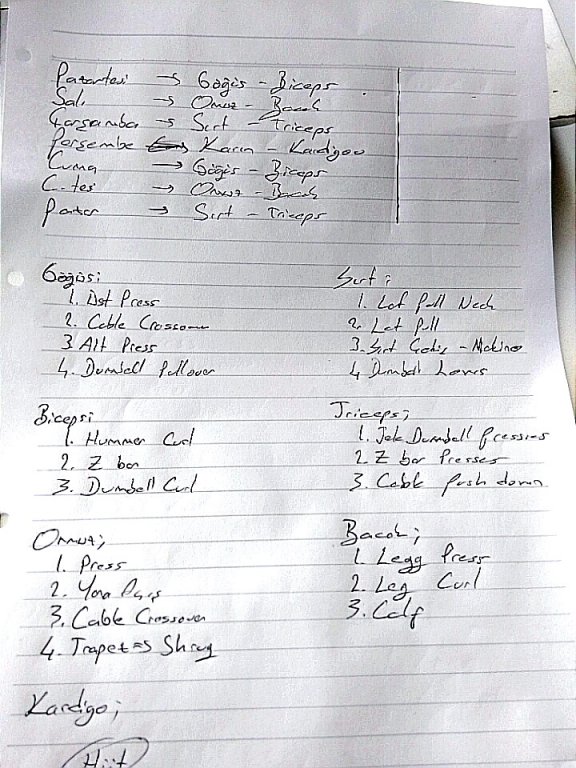 Pazartesi → Göğüs - Biceps
Salı → Omuz - Bacak
Çarşamba → Sırt - Triceps
Perşembe → Karın - Kardigo
Cuma → Göğüs - Biceps
C.tesi → Omuz - Bacak
Pazar → Sırt - Triceps
Göğüs;
1. Üst Press
2. Cable Crossover
3. Alt Press
4. Dumbell Pullover
Sırt;
1. Lat Pull Neck
2. Lat Pull
3. Sırt Çekiş - Makine
4. Dumbell
Biceps;
1. Hummer Curl
2. Z bar
3. Dumbell Curl
Triceps;
1. Tek Dumbell Presses
2. Z bar Presses
3. Cable push down
Omuz;
1. Press
2. Yana
3. Cable Crossover
4. Trapez => Shrug
Bacak;
1. Legg Press
2. Leg Curl
3. Calf
Kardigo;
Hiit